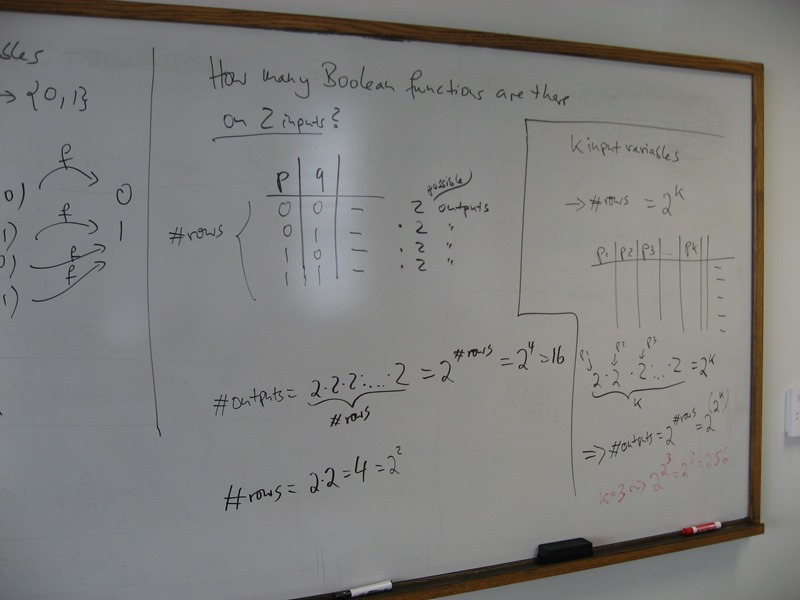 → {0,1}
f
0)
0
f
1)
1
0)
f
f
1)
How many Boolean functions are there
on 2 inputs?
p | q |
0 | 0 | —
0 | 1 | —
1 | 0 | —
1 | 1 | —
#rows {
possible
2 outputs
· 2 "
· 2 "
· 2 "
#outputs = 2·2·2·...·2 = 2^#rows = 2^4 = 16
#rows
#rows = 2·2 = 4 = 2^2
k input variables
→ #rows = 2^k
p1 | p2 | p3 | ... | pk ||
p1 p2 p3
2·2·2·...·2 = 2^k
k
⇒ #outputs = 2^#rows = 2^(2^k)